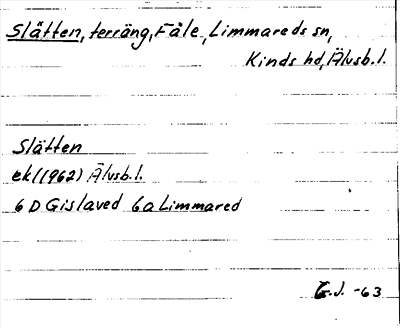 Slätten, terräng, Fåle, Limmareds sn,
Kinds hd, Älvsb.l.
Slätten
ek (1962) Älvsb.l.
6 D Gislaved 6a Limmared
G.J. -63